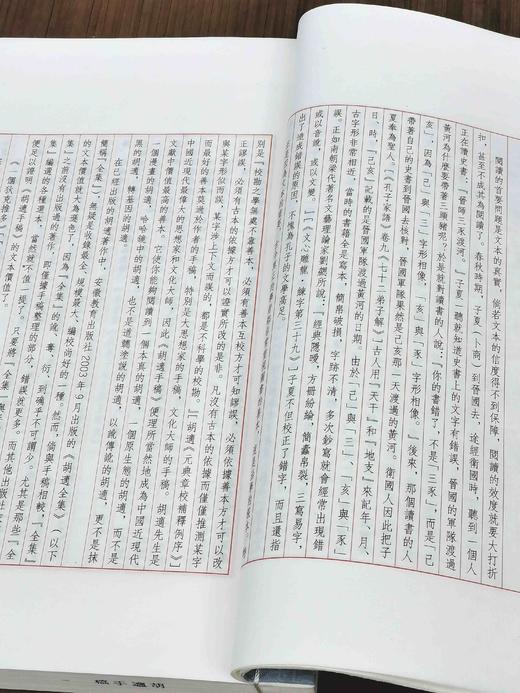 閱讀的首要問題是文本的真實，倘若文本的信度得不到保障，閱讀的效度就要大打折
扣，甚至不成其為閱讀了。春秋時期，子夏（卜商）到晉國去，途經衛國時，聽到一個人
正在讀史書：「晉師三豕渡河。」子夏一聽就知道史書上的文字有錯誤，晉國的軍隊渡過
黃河為什麼要帶著三頭豬呢？於是就對讀書的人說：「你的書錯了，不是「三豕」，而是「己
亥」，因為「己」與「三」字形相像，「亥」與「豕」字形相像。」後來，那個讀書的人
帶著自己的史書到晉國去核對，晉國軍隊果然是己亥那一天渡過的黃河。衛國人因此把子
夏奉為聖人。（《孔子家語》卷九《七十二弟子解》）古人用「天干」和「地支」來記年、月、
日、時，「己亥」記載的是晉國軍隊渡過黃河的日期。由於「己」與「三」、「亥」與「豕」
古字形非常相近，當時的書籍全是寫本，簡帛破損，字跡不清，多次鈔寫就會經常出現錯
誤。正如南朝梁代著名文藝理論家劉勰所說，「經典隱曖，方冊紛綸，簡蠹帛裂，三寫易字，
或以音訛，或以文變。」（《文心雕龍·練字第三十九》）子夏不但校正了錯字，而且還指
出了造成錯誤的原因，不愧為孔子的文學高足。
別是『校勘之學無處不靠善本，必須有善本互校方才可知謬誤，必須依據善本方才可以改
正謬誤，必須有古本的依據方才可以證實所改的是非。凡沒有古本的依據而僅僅推測某字
與某字形似而誤，某字涉上下文而誤的，都是不科學的校勘。』（胡適《元典章校補釋例序》）
而最好的善本莫過於作者的手稿，特別是大思想家的手稿，文化大師的手稿。胡適先生是
中國近現代最偉大的思想家和文化大師，因此《胡適手稿》便理所當然地成為中國近現代
文獻中價值最高的善本。它使你能夠閱讀到一個本真的胡適，一個原生態的胡適，而不是
一個漫畫的胡適，哈哈鏡中的胡適，也不是遭髒塗說的胡適，以訛傳訛的胡適，更不是抹
黑的胡適，轉基因的胡適。
在已經出版的胡適著作中，安徽教育出版社2003年9月出版的《胡適全集》（以下
簡稱『全集』）無疑是收錄最全、規模最大、編校尚好的一種，然而，倘與手稿相較，『全集』
的文本價值就大為遜色了，因為『全集』的訛、奪、衍、到磯乎不可讀
集』之前沒有出版過的著作，即僅據手稿整理的部分，錯誤就更多。而其他出版社
集』編選的各種選本，當然就不值一提了。只要將『全集』與
便足以證明《胡適手稿》的文本價值了。
胡適手稿